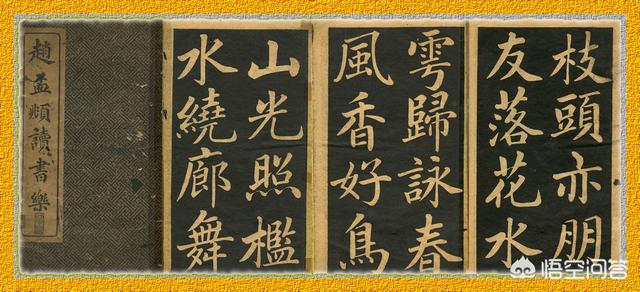 趙孟頫讀書樂
山光照檻
水繞廊舞
雩歸詠春
風香好鳥
枝頭亦朋
友落花水
悟空问答